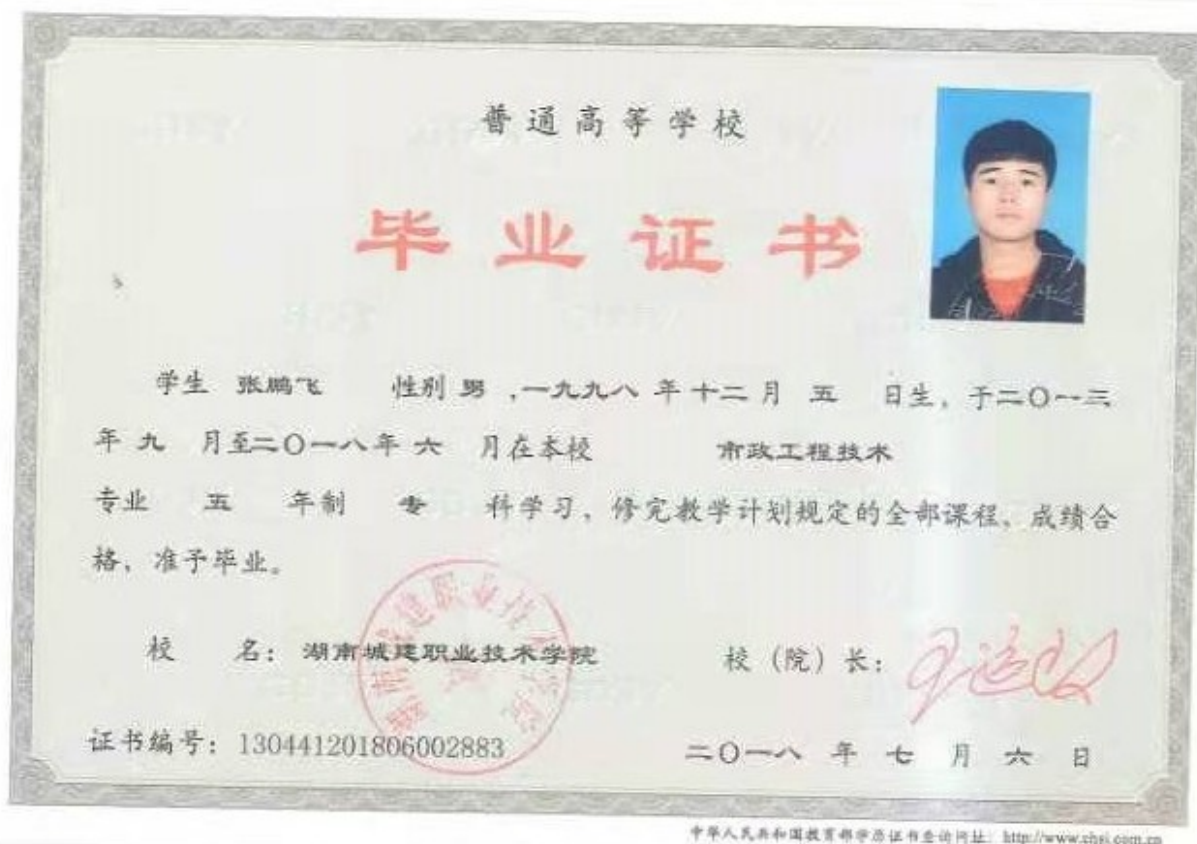 普通高等学校
毕业证书
学生 张鹏飞 性别 男 ,一九九八 年 十二 月 五 日生, 于二〇一三
年 九 月至二〇一八年 六 月在本校 市政工程技术
专业 五 年制 专 科学习, 修完教学计划规定的全部课程, 成绩合
格, 准予毕业。
湖南城建职业技术学院
校 名: 湖南城建职业技术学院 校(院)长:
证书编号: 130441201806002883 二〇一八 年 七 月 六 日
中华人民共和国教育部学历证书查询网址: http://www.chsi.com.cn